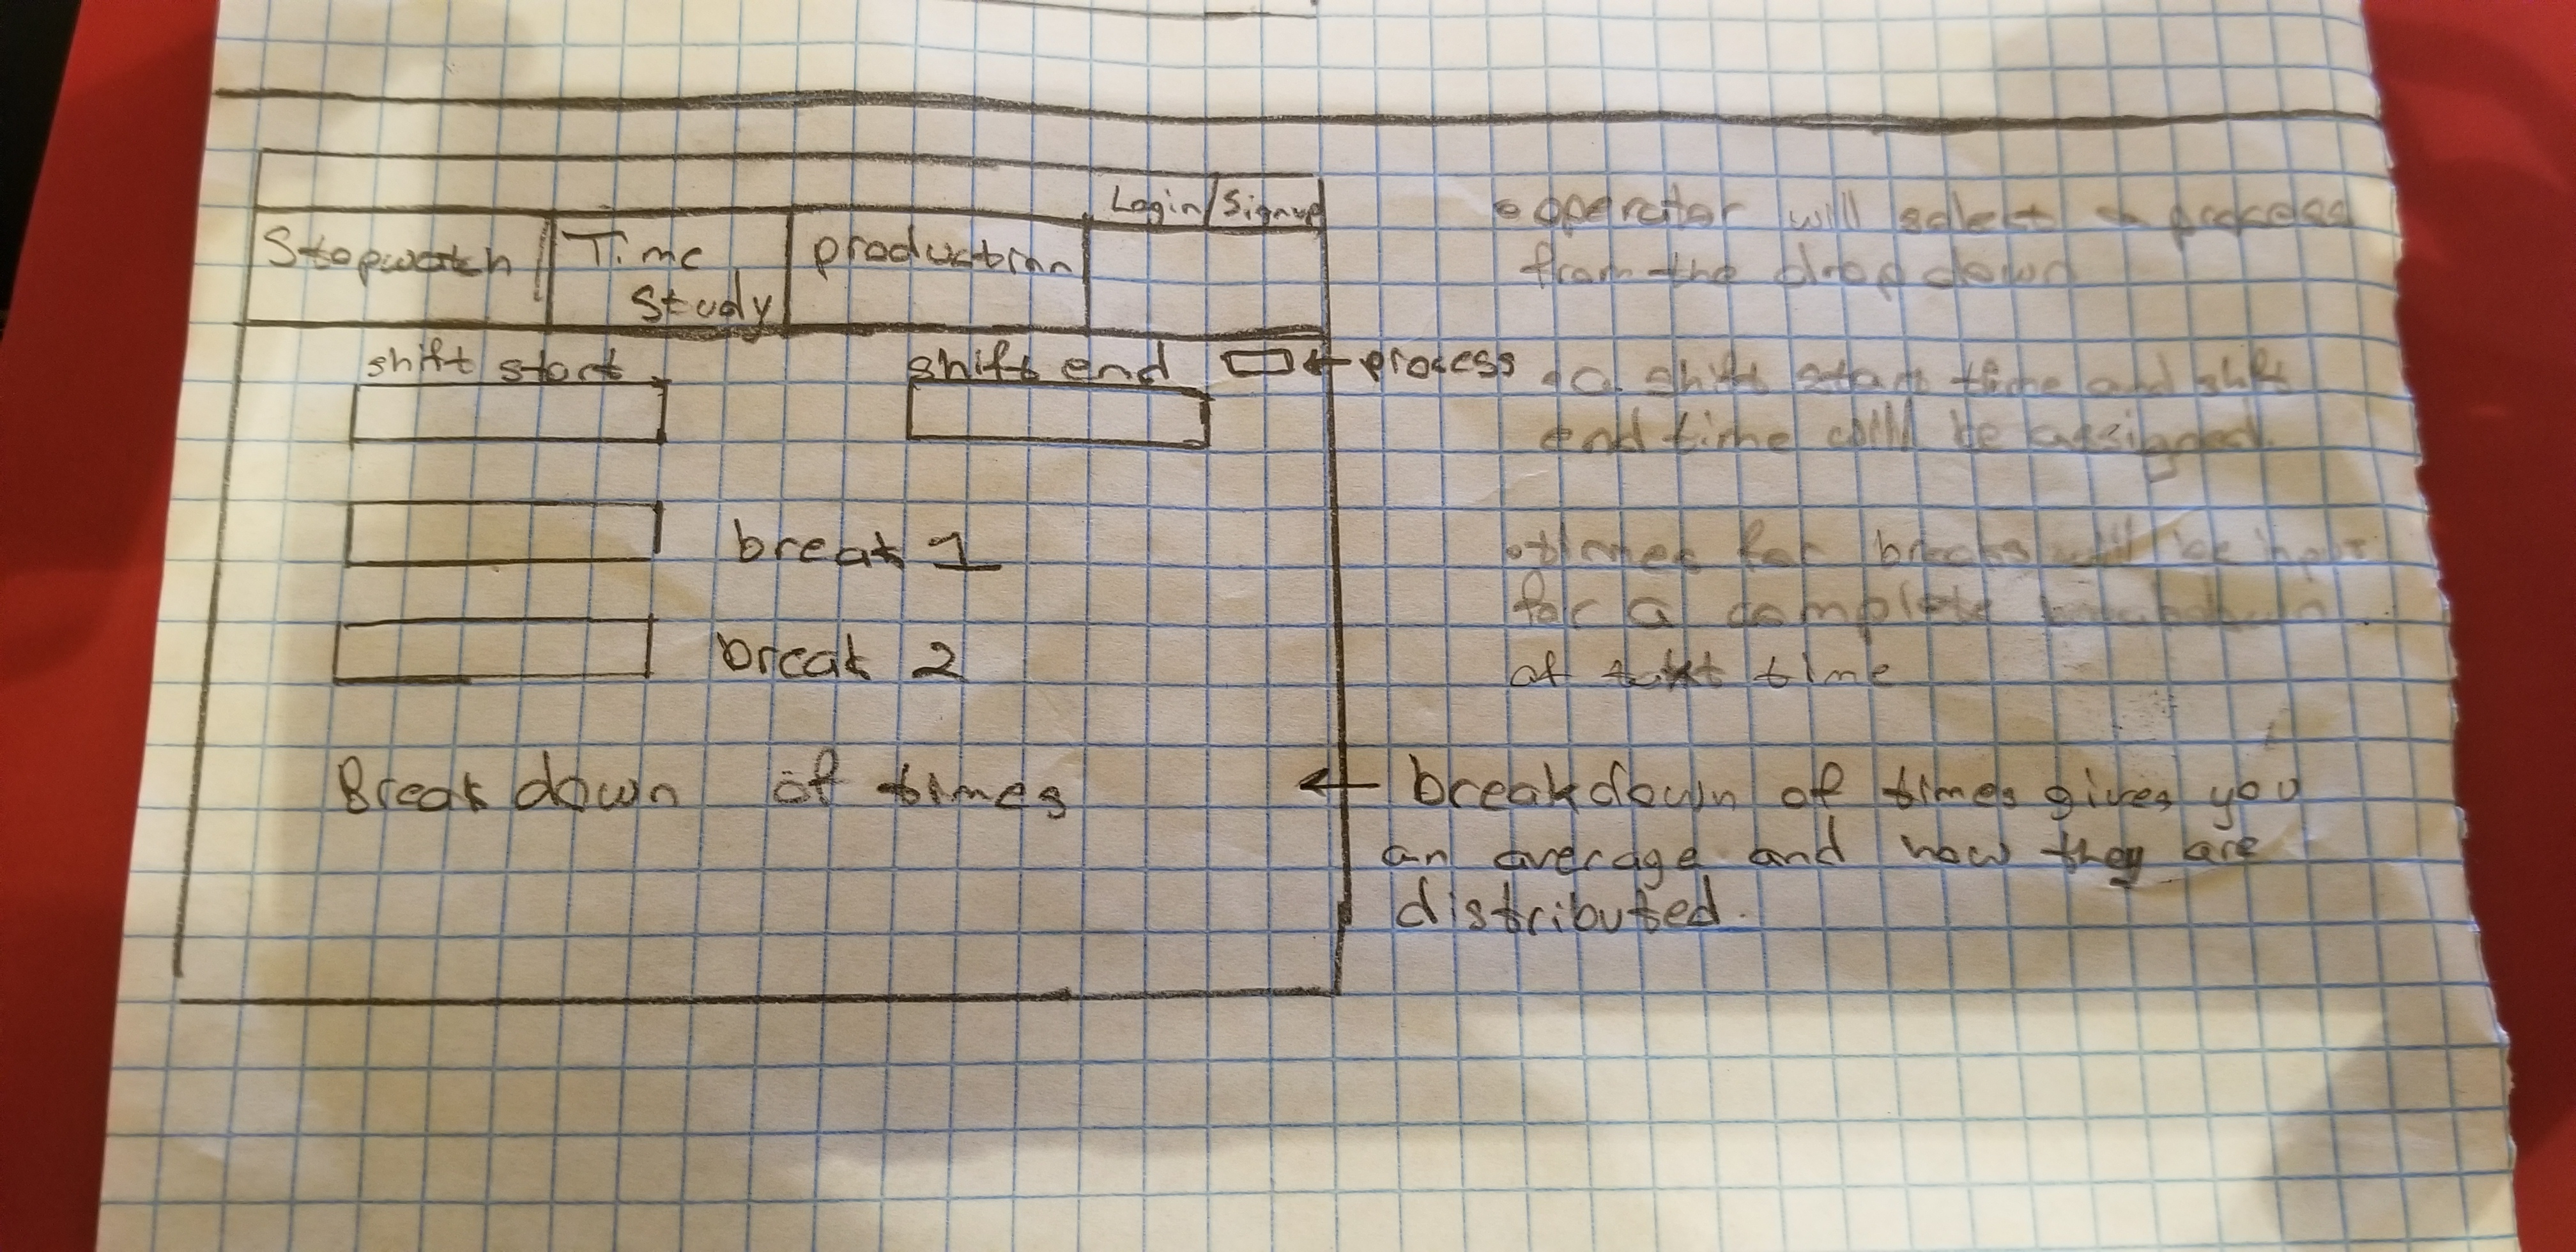 Login/Signup
Stopwatch
Time
Study
production
shift start
shift end
← process
break 1
break 2
Break down of times
• operator will select a process
from the drop down
• a shift start time and shift
end time will be assigned.
• times for breaks will be input
for a complete breakdown
of takt time
← breakdown of times gives you
an average and how they are
distributed.